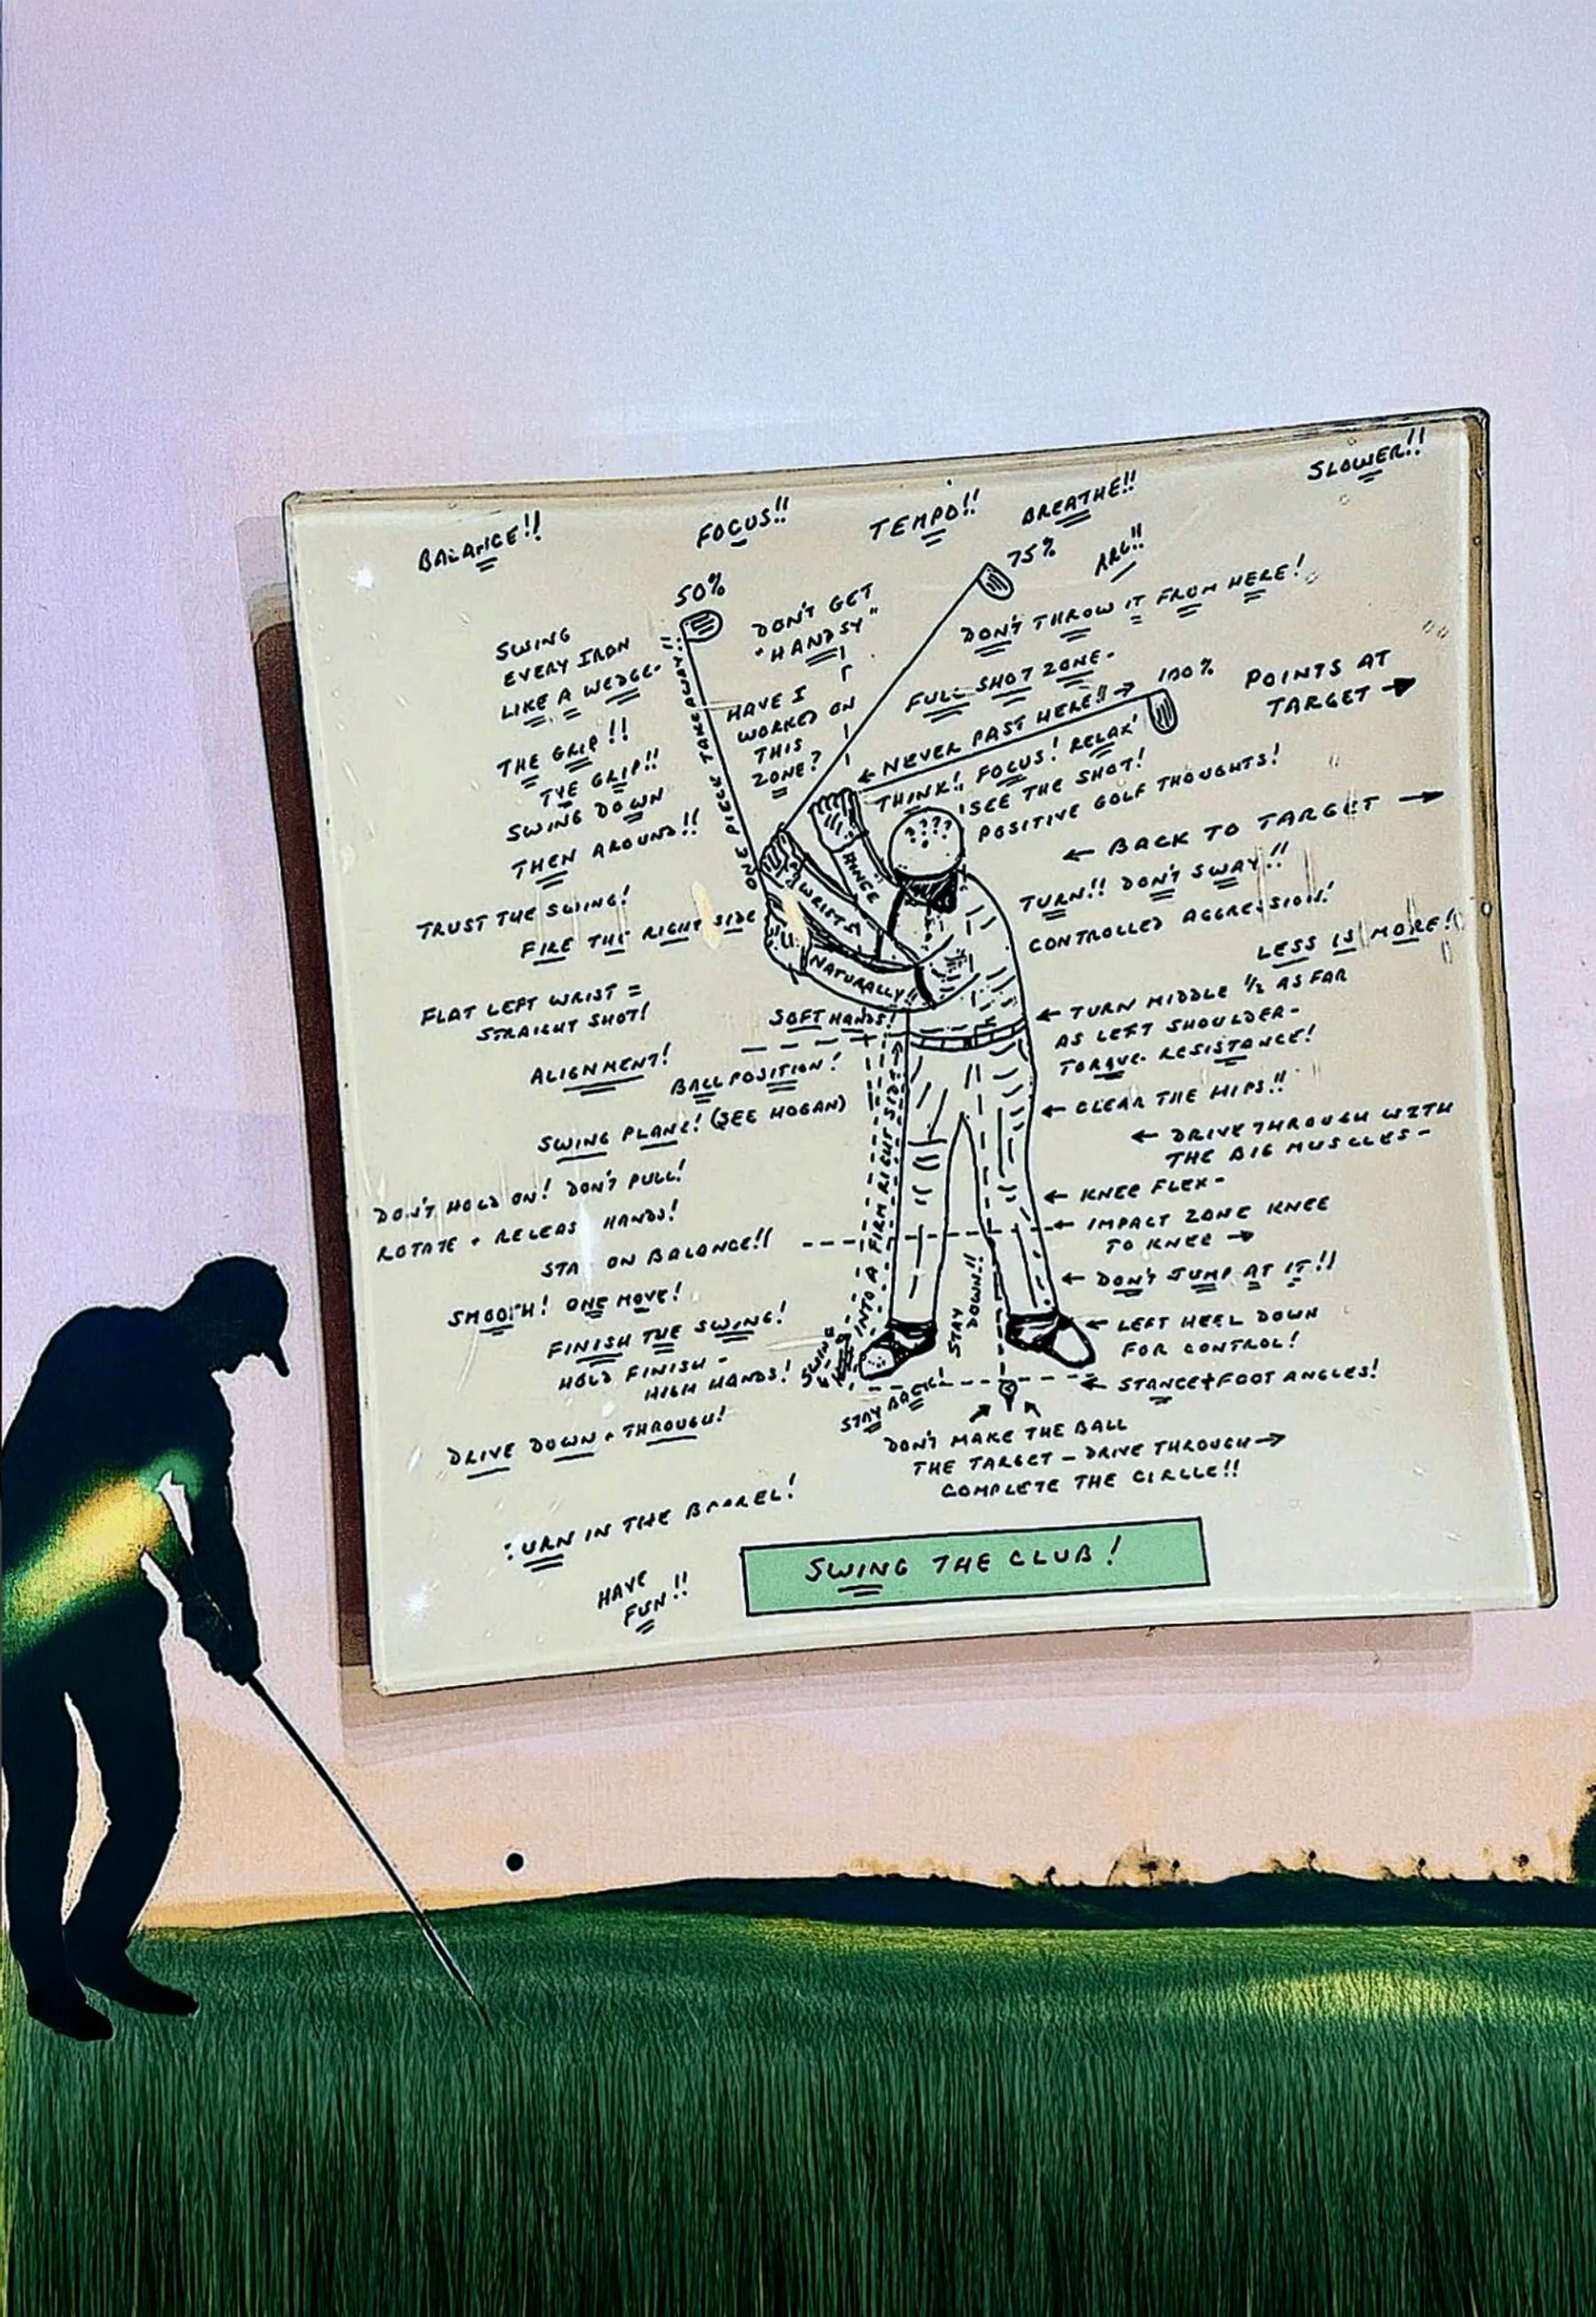 BALANCE!!
FOCUS!!
TEMPO!!
BREATHE!!
SLOWER!!
50%
75%
ARC!!
SWING
EVERY IRON
LIKE A WEDGE-
DON'T GET
"HANDSY"
DON'T THROW IT FROM HERE!
FULL SHOT ZONE-
100%
POINTS AT
TARGET →
ONE PIECE TAKEAWAY!!
HAVE I
WORKED ON
THIS
ZONE?
← NEVER PAST HERE!! →
THINK!! FOCUS! RELAX!
SEE THE SHOT!
POSITIVE GOLF THOUGHTS!
THE GRIP!!
THE GRIP!!
SWING DOWN
THEN AROUND!!
????
← BACK TO TARGET →
TURN!! DON'T SWAY!!
CONTROLLED AGGRESSION!
LESS IS MORE!!
HINGE
WRISTS
NATURALLY!!
TRUST THE SWING!
FIRE THE RIGHT SIDE
FLAT LEFT WRIST =
STRAIGHT SHOT!
SOFT HANDS!
← TURN MIDDLE 1/2 AS FAR
AS LEFT SHOULDER-
TORQUE- RESISTANCE!
ALIGNMENT!
BALL POSITION!
SWING PLANE! (SEE HOGAN)
← CLEAR THE HIPS!!
← DRIVE THROUGH WITH
THE BIG MUSCLES-
DON'T HOLD ON! DON'T PULL!
ROTATE + RELEAS HANDS!
STA ON BALANCE!!
← KNEE FLEX-
← IMPACT ZONE KNEE
TO KNEE →
← DON'T JUMP AT IT!!
SMOOTH! ONE MOVE!
FINISH THE SWING!
HOLD FINISH -
HIGH HANDS!
SWING
INTO A FIRM RIGHT SIDE
STAY
DOWN!!
← LEFT HEEL DOWN
FOR CONTROL!
← STANCE + FOOT ANGLES!
STAY BACK!
DRIVE DOWN + THROUGH!
DON'T MAKE THE BALL
THE TARGET - DRIVE THROUGH →
COMPLETE THE CIRCLE!!
TURN IN THE BARREL!
HAVE
FUN!!
SWING THE CLUB!